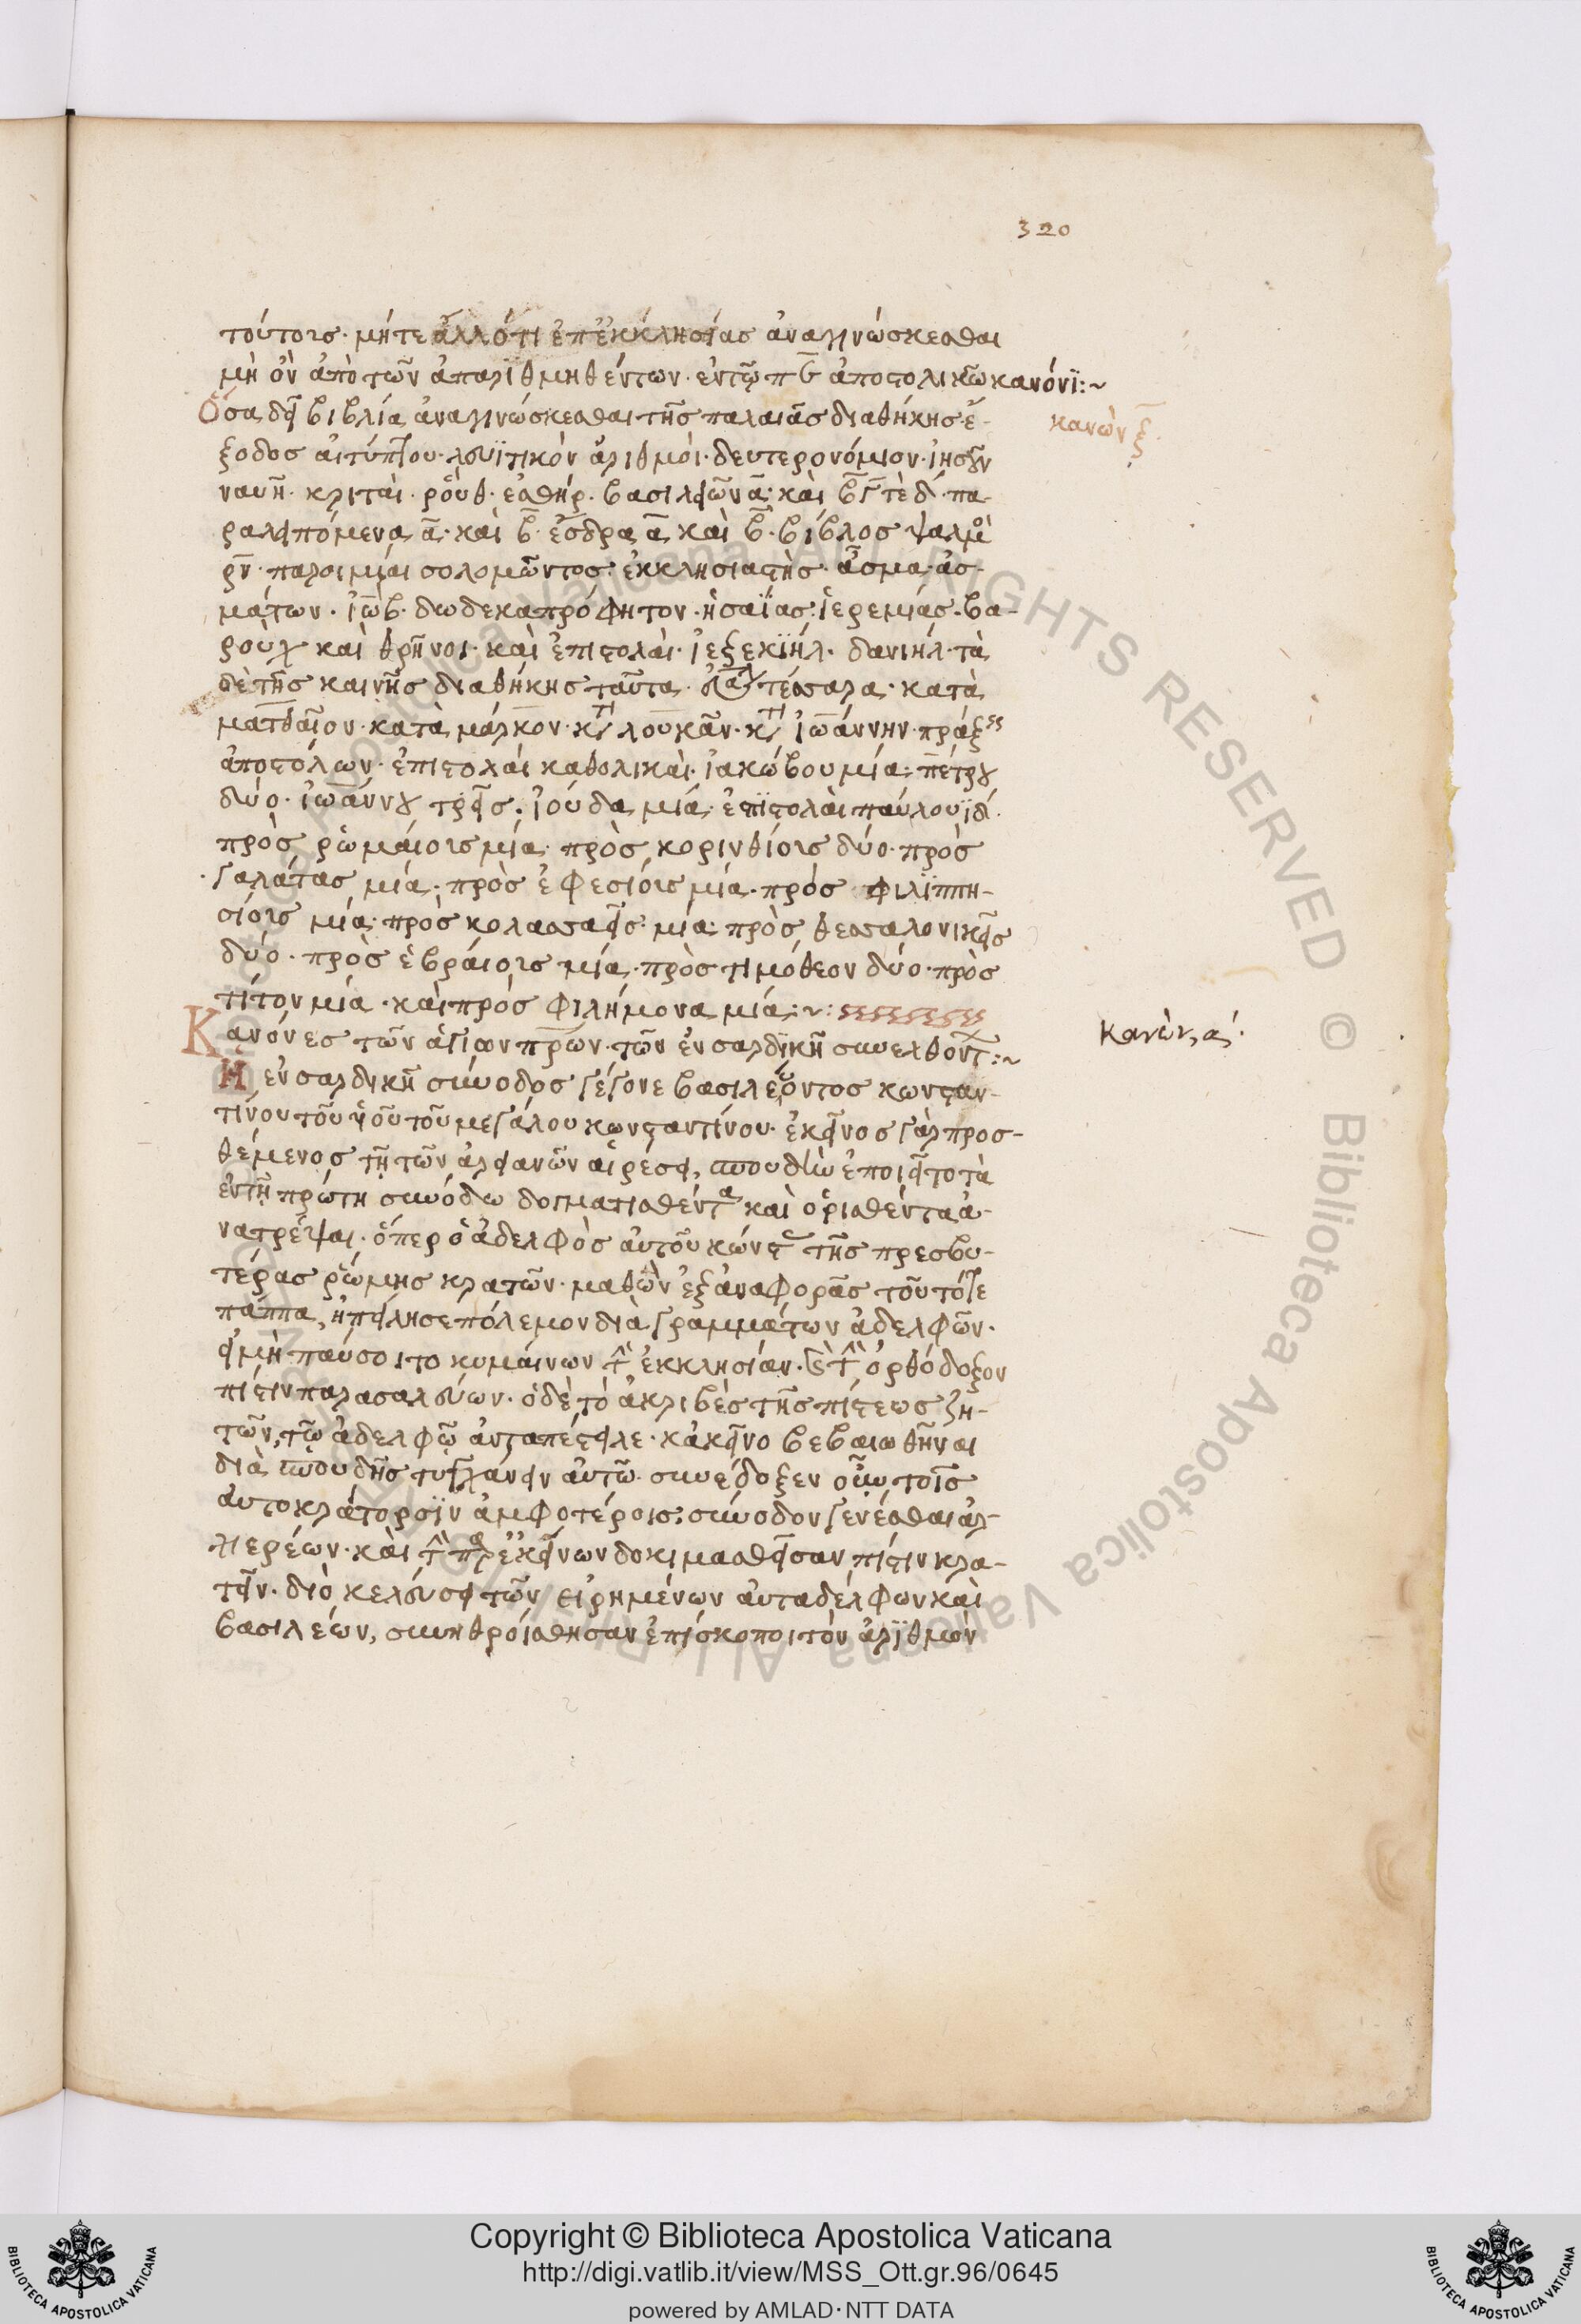 320
τούτοις· μήτε ἄλλό τι ἐπ' ἐκκλησίας ἀναγινώσκεσθαι
μὴ ὂν ἀπὸ τῶν ἀπαριθμηθέντων· ἐν τῷ πε̄ ἀποστολικῶ κανόνϊ:~
Ὅσα δεῖ βιβλία ἀναγινώσκεσθαι τῆς παλαιᾶς διαθήκης· ἔ-
κανὼν ξ̄
ξοδος αἰγύπτου· λευϊτικὸν ἀριθμοὶ· δευτερονόμιον· ἰησοῦν
ναυῆ· κριταὶ· ῥοὺθ· ἐσθήρ· βασιλειῶν ᾱ· καὶ β̄ γ̄ τὲ δ̄· πα-
ραλειπόμενα ᾱ· καὶ β̄· ἔσδρα ᾱ καὶ β̄· βίβλος ψαλμῶ
ρν̄· παροιμίαι σολομῶντος· ἐκκλησιαστὴς· ἆσμα ἀσ-
μάτων· ἰὼβ· δωδεκαπρόφητον· ἡσαΐας· ἱερεμίας· βα-
ροὺχ καὶ θρῆνοι· καὶ ἐπιστολαὶ· ἰεξεκϊὴλ· δανιὴλ· τὰ
δὲ τῆς καινῆς διαθήκης ταῦτα· τέσσαρα· κατὰ
ματθαῖον· κατὰ μάρκον· κτ λουκᾶν· κτ ἰωάννην· πράξεις
ἀποστόλων· ἐπιστολαὶ καθολικαὶ· ἰακώβου μία· πέτρου
δύο· ἰωάννου τρεῖς· ἰούδα μία· ἐπϊστολαὶ παύλου ϊδ̄·
πρὸς ῥωμαίοις μία· πρὸς κορινθίοις δύο· πρὸς
γαλάτας μία· πρὸς ἐφεσίοις μία· πρὸς φιλϊππη-
σίοις μία· πρὸς κολασσαεῖς· μία· πρὸς θεσσαλονικεῖς
δύο· πρὸς ἑβραίοις μία· πρὸς τιμόθεον δύο· πρὸς
τίτον μία· καὶ πρὸς φιλήμονα μία:~
Κανόνες τῶν ἁγίων πρ̄ων· τῶν ἐν σαρδϊκῆ συνελθόντ:~
κανὼν, α'.
Ἡ ἐν σαρδικῆ σύνοδος γέγονε βασιλεύοντος κωνσταν-
τίνου τοῦ ὑοῦ τοῦ μεγάλου κωνσταντίνου· ἐκεῖνος γὰρ προσ-
θέμενος τῆ τῶν ἀρειανῶν αἱρέσει, σπουδὴν ἐποιεῖτο τὰ
ἐν τῆ πρώτη συνόδω δογματισθέντα καὶ ὁρισθέντα ἀ-
νατρέψαι· ὅπερ ὁ ἀδελφὸς αὐτοῦ κώνστ τῆς πρεσβυ-
τέρας ῥώμης κρατῶν· μαθὼν ἐξ ἀναφορᾶς τοῦ τότε
πάππα, ἠπείλησε πόλεμον διὰ γραμμάτων ἀδελφῶν·
εἰ μὴ παύσοιτο κυμαίνων τὴν ἐκκλησίαν· καὶ τὴν ὀρθόδοξον
πίστιν παρασαλεύων· ὁ δὲ τὸ ἀκριβὲς τῆς πίστεως ζη-
τῶν, τῶ ἀδελφῶ ἀνταπέστειλε· κἀκεῖνο βεβαιωθῆναι
διὰ σπουδῆς τυγχάνειν αὐτῶ· συνέδοξεν οὖν τοῖς
αὐτοκράτορσϊν ἀμφοτέροις· σύνοδον γενέσθαι ἀρ-
χιερέων· καὶ τὴν παρ' ἐκείνων δοκιμασθεῖσαν πίστιν κρα-
τεῖν· διὸ κελεύσει τῶν εἰρημένων αὐταδέλφων καὶ
βασιλέων, συνηθροίσθησαν ἐπίσκοποι τὸν ἀρϊθμὸν
ALL RIGHTS RESERVED © Biblioteca Apostolica Vaticana
Copyright © Biblioteca Apostolica Vaticana
http://digi.vatlib.it/view/MSS_Ott.gr.96/0645
powered by AMLAD·NTT DATA
BIBLIOTECA APOSTOLICA VATICANA
BIBLIOTECA APOSTOLICA VATICANA